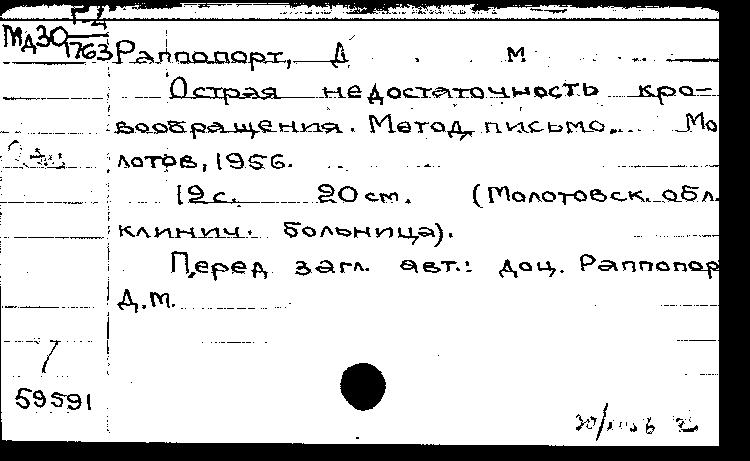 Мд30 Г-2
1763
Раппопорт, Д М
Острая недостаточность кро-
вообращения. Метод. письмо. Мо
лотов, 1956.
12 с. 20 см. (Молотовск. обл.
клинич. больница).
Перед загл. авт.: доц. Раппопор
Д.М.
59591